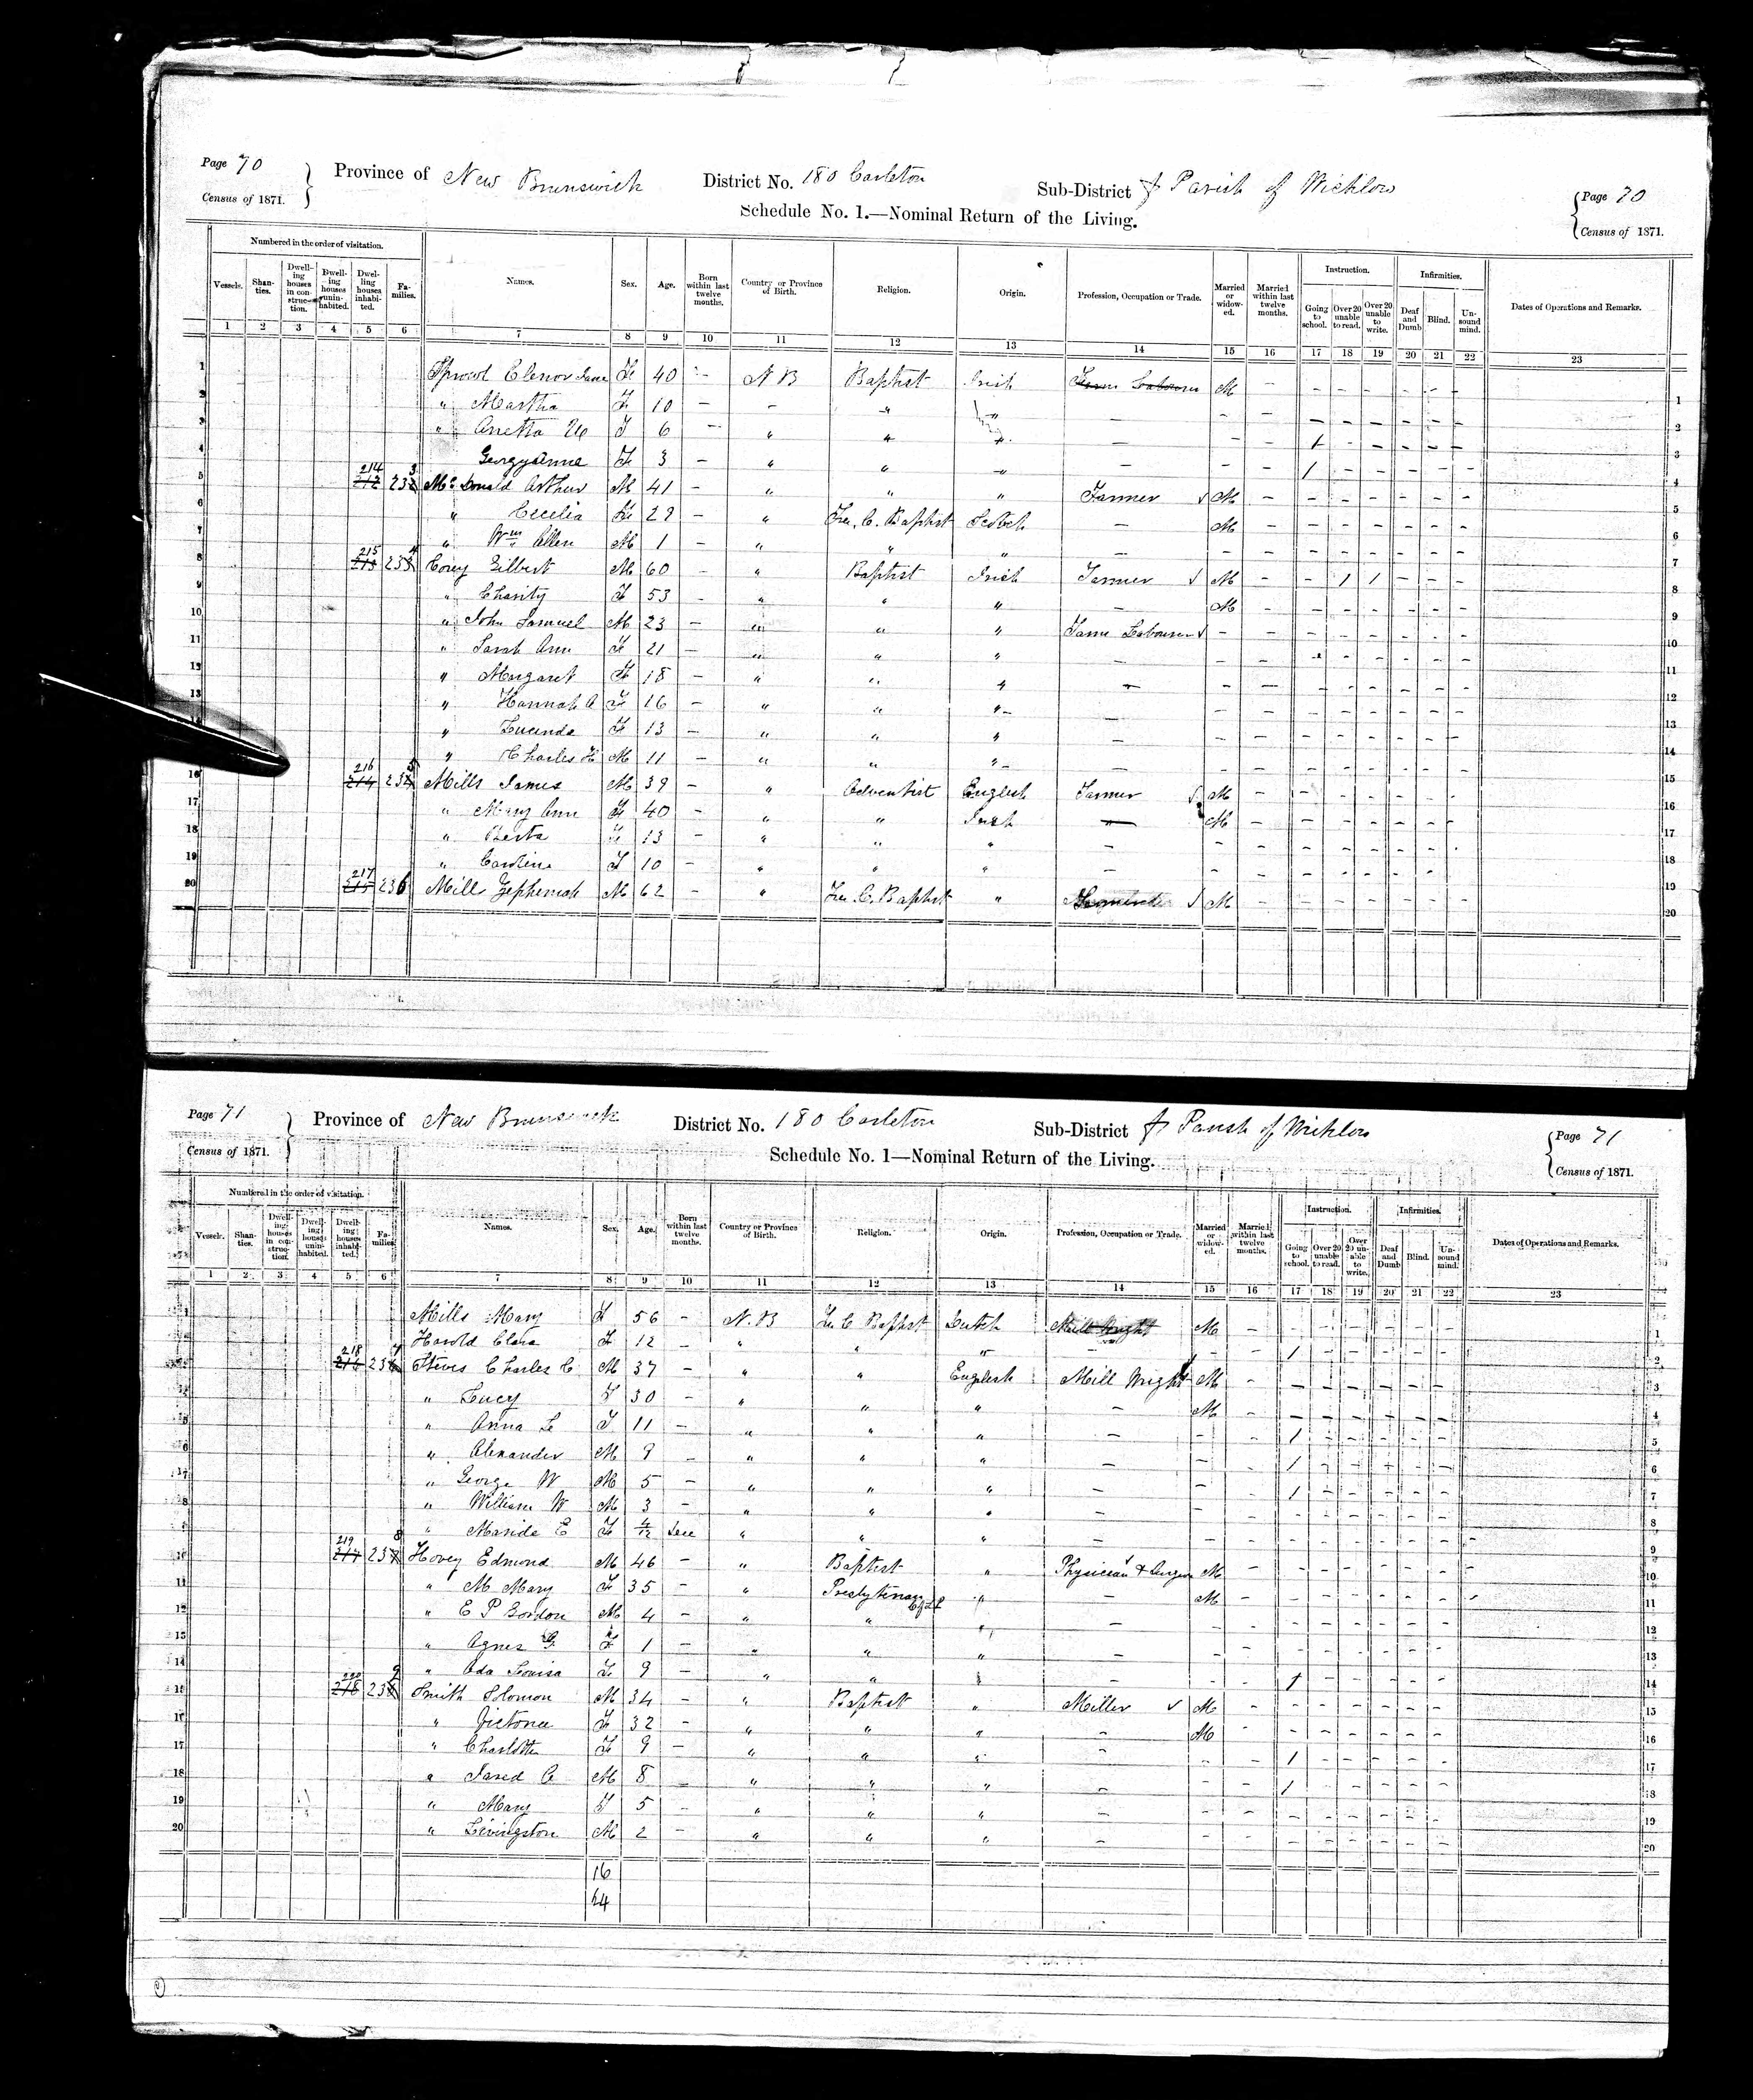 Page 70
Census of 1871.
Province of New Brunswick District No. 180 Carleton Sub-District f Parish of Wicklow
Page 70
Census of 1871.
Schedule No. 1.—Nominal Return of the Living.
Numbered in the order of visitation. Instruction. Infirmities.
Vessels. Shan-ties. Dwell-ing houses in con-struc-tion. Dwell-ing houses unin-habited. Dwel-ling houses inhabi-ted. Fa-milies. Names. Sex. Age. Born within last twelve months. Country or Province of Birth. Religion. Origin. Profession, Occupation or Trade. Married or widow-ed. Married within last twelve months. Going to school. Over 20 unable to read. Over 20 unable to write. Deaf and Dumb Blind. Un-sound mind. Dates of Operations and Remarks.
1 2 3 4 5 6 7 8 9 10 11 12 13 14 15 16 17 18 19 20 21 22 23
1 Elenor Jane F 40 - N B Baptist Irish Farm Labourer M - - - - - - - 1
2 " Martha F 10 - - " " - - - - - - - - - 2
3 " Anetta F 6 - " " " - - - 1 - - - - - 3
4 Georgyanna F 3 - " " " - - - 1 - - - - - 4
5 214 212 233 McDonald Arthur M 41 - " " " Farmer M - - - - - - - 5
6 " Cecelia F 29 - " Fre. C. Baptist Scotch - M - - - - - - - 6
7 " Wm Allen M 1 - " " " - - - - - - - - - 7
8 215 213 234 Corey Gilbert M 60 - " Baptist Irish Farmer M - - 1 1 - - - 8
9 " Charity F 53 - " " " - M - - - - - - - 9
10 " John Samuel M 23 - " " " Farm Labourer - - - - - - - - 10
11 " Sarah Ann F 21 - " " " - - - - - - - - - 11
12 " Margaret F 18 - " " " - - - - - - - - - 12
13 " Hannah A F 16 - " " " - - - - - - - - - 13
" Lucinda F 13 - " " " - - - - - - - - - 14
" Charles H M 11 - " " " - - - - - - - - - 15
16 216 214 235 Mills James M 39 - " Adventist English Farmer M - - - - - - - 16
17 " Mary Ann F 40 - " " Irish - M - - - - - - - 17
18 " F 13 - " " " - - - - - - - - - 18
19 " Caroline F 10 - " " " - - - - - - - - - 19
20 217 215 236 Mills Zepheniah M 62 - " Fre. C. Baptist " M - - - - - - - 20
Page 71
Census of 1871.
Province of New Brunswick District No. 180 Carleton Sub-District f Parish of Wicklow
Page 71
Census of 1871.
Schedule No. 1—Nominal Return of the Living.
Numbered in the order of visitation. Instruction. Infirmities.
Vessels. Shan-ties. Dwell-ing houses in con-struc-tion. Dwell-ing houses unin-habited. Dwell-ing houses inhabi-ted. Fa-milies. Names. Sex. Age. Born within last twelve months. Country or Province of Birth. Religion. Origin. Profession, Occupation or Trade. Married or widow-ed. Married within last twelve months. Going to school. Over 20 unable to read. Over 20 un-able to write. Deaf and Dumb Blind. Un-sound mind. Dates of Operations and Remarks.
1 2 3 4 5 6 7 8 9 10 11 12 13 14 15 16 17 18 19 20 21 22 23
Mills Mary F 56 - N.B Fre C Baptist Dutch Mill Wright M - - - - - - - 1
Harold Clara F 12 - " " " - - - 1 - - - - - 2
218 216 237 Charles C. M 37 - " " English Mill Wright M - - - - - - - 3
" Lucy F 30 - " " " - M - - - - - - - 4
" Anna L F 11 - " " " - - - 1 - - - - - 5
" Alexander M 9 - " " " - - - 1 - - - - - 6
" George W M 5 - " " " - - - 1 - - - - - 7
" William W M 3 - " " " - - - - - - - - - 8
" E F 4/12 Dec " " " - - - - - - - - - 9
219 217 238 Hovey Edmond M 46 - " Baptist " Physician & Surgeon M - - - - - - - 10
11 " M Mary F 35 - " Presbyterian " - M - - - - - - - 11
12 " E P Gordon M 4 - " " " - - - - - - - - - 12
13 " Agnes G F 1 - " " " - - - - - - - - - 13
14 " Ada Louisa F 9 - " " " - - - 1 - - - - - 14
15 220 218 239 Smith Solomon M 34 - " Baptist " Miller M - - - - - - - 15
16 " Victoria F 32 - " " " - M - - - - - - - 16
17 " Charlotte F 9 - " " " - - - 1 - - - - - 17
18 " Jared C M 8 - " " " - - - 1 - - - - - 18
19 " Mary F 5 - " " " - - - - - - - - - 19
20 " Livingston M 2 - " " " - - - - - - - - - 20
16